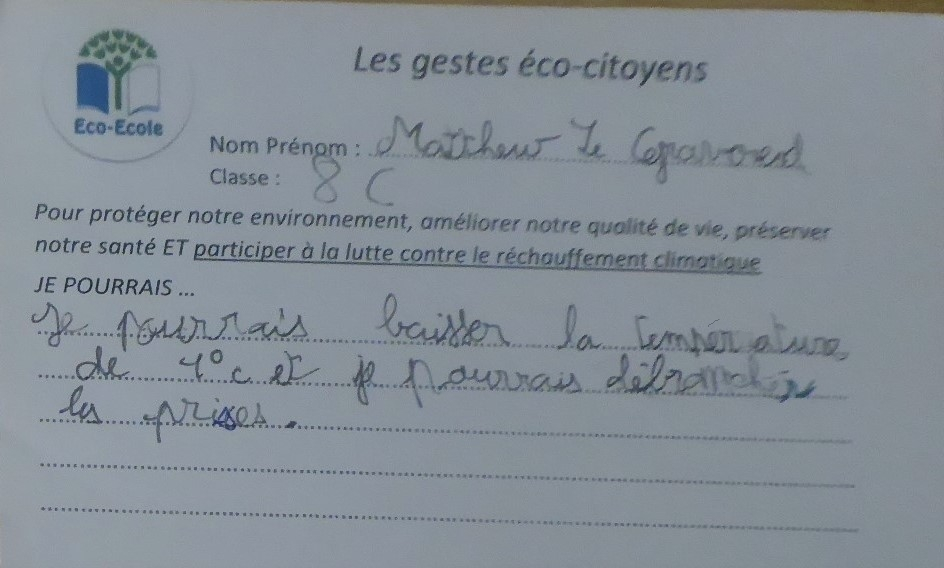 Eco-Ecole
Les gestes éco-citoyens
Nom Prénom : Matthew Le
Classe : 8 C
Pour protéger notre environnement, améliorer notre qualité de vie, préserver
notre santé ET participer à la lutte contre le réchauffement climatique
JE POURRAIS ...
Je pourrais baisser la température
de 1°c et je pourrais débrancher
les prises.